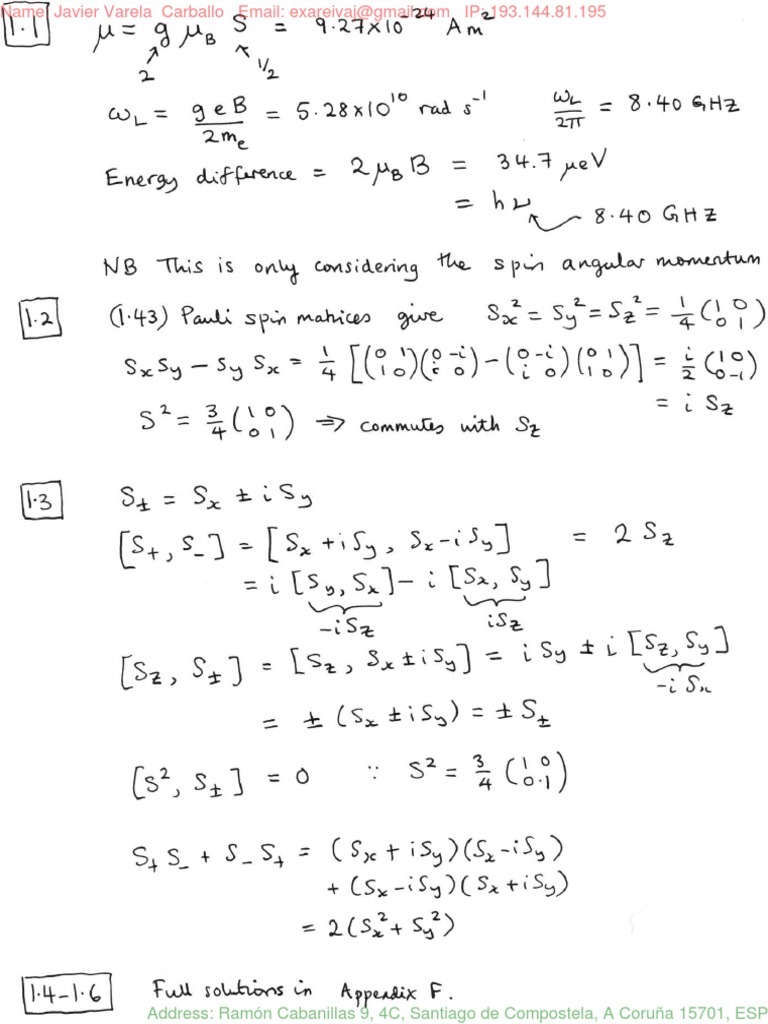 Name: Javier Varela Carballo Email: exareivaj@gmail.com IP: 193.144.81.195
1.1 μ = g μ_B S = 9.27×10^-24 A m^2
2 1/2
ω_L = geB/2m_e = 5.28×10^10 rad s^-1 ω_L/2π = 8.40 GHz
Energy difference = 2μ_B B = 34.7 μeV
= hν
8.40 GHz
NB This is only considering the spin angular momentum
1.2 (1.43) Pauli spin matrices give S_x^2 = S_y^2 = S_z^2 = 1/4 (1 0; 0 1)
S_x S_y − S_y S_x = 1/4 [(0 1; 1 0)(0 −i; i 0) − (0 −i; i 0)(0 1; 1 0)] = i/2 (1 0; 0 −1)
= i S_z
S^2 = 3/4 (1 0; 0 1) ⇒ commutes with S_z
1.3 S_± = S_x ± i S_y
[S_+, S_-] = [S_x + i S_y, S_x − i S_y] = 2 S_z
= i [S_y, S_x] − i [S_x, S_y]
−i S_z i S_z
[S_z, S_±] = [S_z, S_x ± i S_y] = i S_y ± i [S_z, S_y]
−i S_x
= ± (S_x ± i S_y) = ± S_±
[S^2, S_±] = 0 ∵ S^2 = 3/4 (1 0; 0 1)
S_+ S_- + S_- S_+ = (S_x + i S_y)(S_x − i S_y)
+ (S_x − i S_y)(S_x + i S_y)
= 2(S_x^2 + S_y^2)
1.4–1.6 Full solutions in Appendix F.
Address: Ramón Cabanillas 9, 4C, Santiago de Compostela, A Coruña 15701, ESP